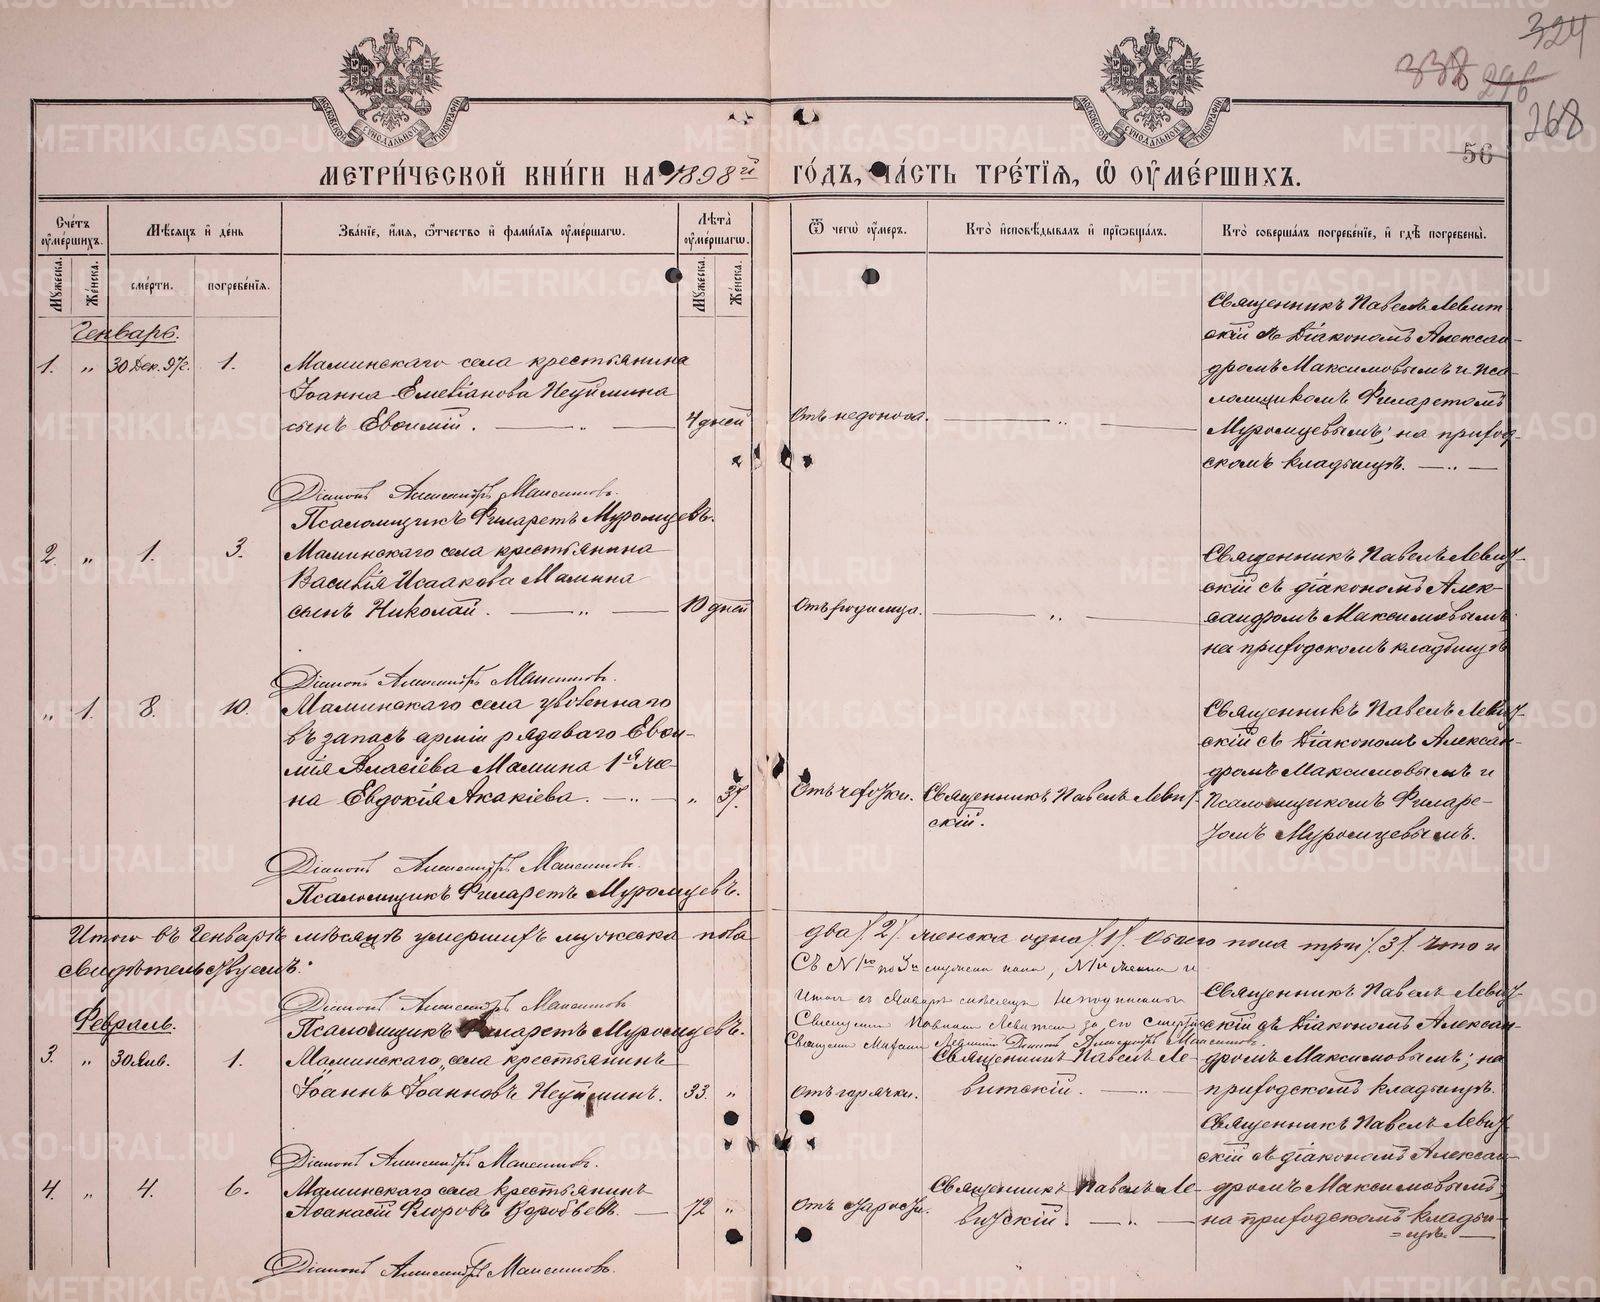 324
338 296
268
56
МЕТРИ́ЧЕСКОЙ КНИ́ГИ НА 1898й ГО́ДЪ, ЧА́СТЬ ТРЕ́ТІЯ, Ѡ ОУМЕ́РШИХЪ.
Сче́тъ оумє́ршихъ.
Мѣ́сяцъ и де́нь
Зва́ніе, и́мя, ѻ́тчество и фами́лія оуме́ршагѡ.
Лѣта̀ оуме́ршагѡ.
Ѿ чегѡ̀ оу́меръ.
Кто̀ исповѣ́дывалъ и пріѡбща́лъ.
Кто̀ соверша́лъ погребе́ніе, и гдѣ̀ погребены̀.
Мꙋжеска. Же́нска. сме́рти. погребе́нія. Мꙋжеска. Же́нска.
Генварь.
1. „ 30 Дек. 97г. 1.
Маминскаго села крестьянина
Іоанна Емеліанова Неуймина
сынъ Евѳимій. — „ —
4 дней
Отъ недоноса. — „ —
Священникъ Павелъ Левит-
скій съ Діакономъ Алексан-
дромъ Максимовымъ и Пса-
ломщикомъ Филаретомъ
Муромцевымъ; на приход-
скомъ кладбищѣ. — „ —
Діаконъ Александръ Максимовъ.
Псаломщикъ Филаретъ Муромцевъ.
2. „ 1. 3.
Маминскаго села крестьянина
Василія Исаакова Мамина
сынъ Николай. — „ —
10 дней
Отъ родимца. — „ —
Священникъ Павелъ Левит-
скій съ діакономъ Алек-
сандромъ Максимовымъ
на приходскомъ кладбищѣ
Діаконъ Александръ Максимовъ.
„ 1. 8. 10.
Маминскаго села уволеннаго
въ запасъ арміи рядоваго Евѳи-
мія Власіева Мамина 1я же-
на Евдокія Акакіева. — „ —
„ 37.
Отъ чахотки.
Священникъ Павелъ Левит-
скій.
Священникъ Павелъ Левит-
скій съ Діакономъ Алексан-
дромъ Максимовымъ и
Псаломщикомъ Филаре-
томъ Муромцевымъ.
Діаконъ Александръ Максимовъ.
Псаломщикъ Филаретъ Муромцевъ.
Итого въ Генварѣ мѣсяцѣ умершихъ мужеска пола два /2/. женска одна /1/. Обоего пола три /3/. Что и
свидѣтельствуемъ.
Съ № 1го по 3й мужска пола, № 1й женска и
Итогъ съ Январь мѣсяцъ неподписаны
Священникомъ Павломъ Левитскимъ за его смертію
Діаконъ Александръ Максимовъ
Псаломщикъ Филаретъ Муромцевъ.
Священникъ Діаконъ Александръ Максимовъ.
Февраль.
3. „ 30 Янв. 1.
Маминскаго села крестьянинъ
Іоаннъ Іоанновъ Неуйминъ.
33. „
Отъ горячки.
Священникъ Павелъ Ле-
витскій. — „ —
Священникъ Павелъ Левит-
скій съ Діакономъ Алексан-
дромъ Максимовымъ; на
приходскомъ кладбищѣ.
Діаконъ Александръ Максимовъ.
4. „ 4. 6.
Маминскаго села крестьянинъ
Аѳанасій Флоровъ Воробьевъ. —
72 „
Отъ старости.
Священникъ Павелъ Ле-
витскій. — „ —
Священникъ Павелъ Левит-
скій съ діакономъ Алексан-
дромъ Максимовымъ,
на приходскомъ кладби-
=щѣ. —
Діаконъ Александръ Максимовъ.
METRIKI.GASO-URAL.RU